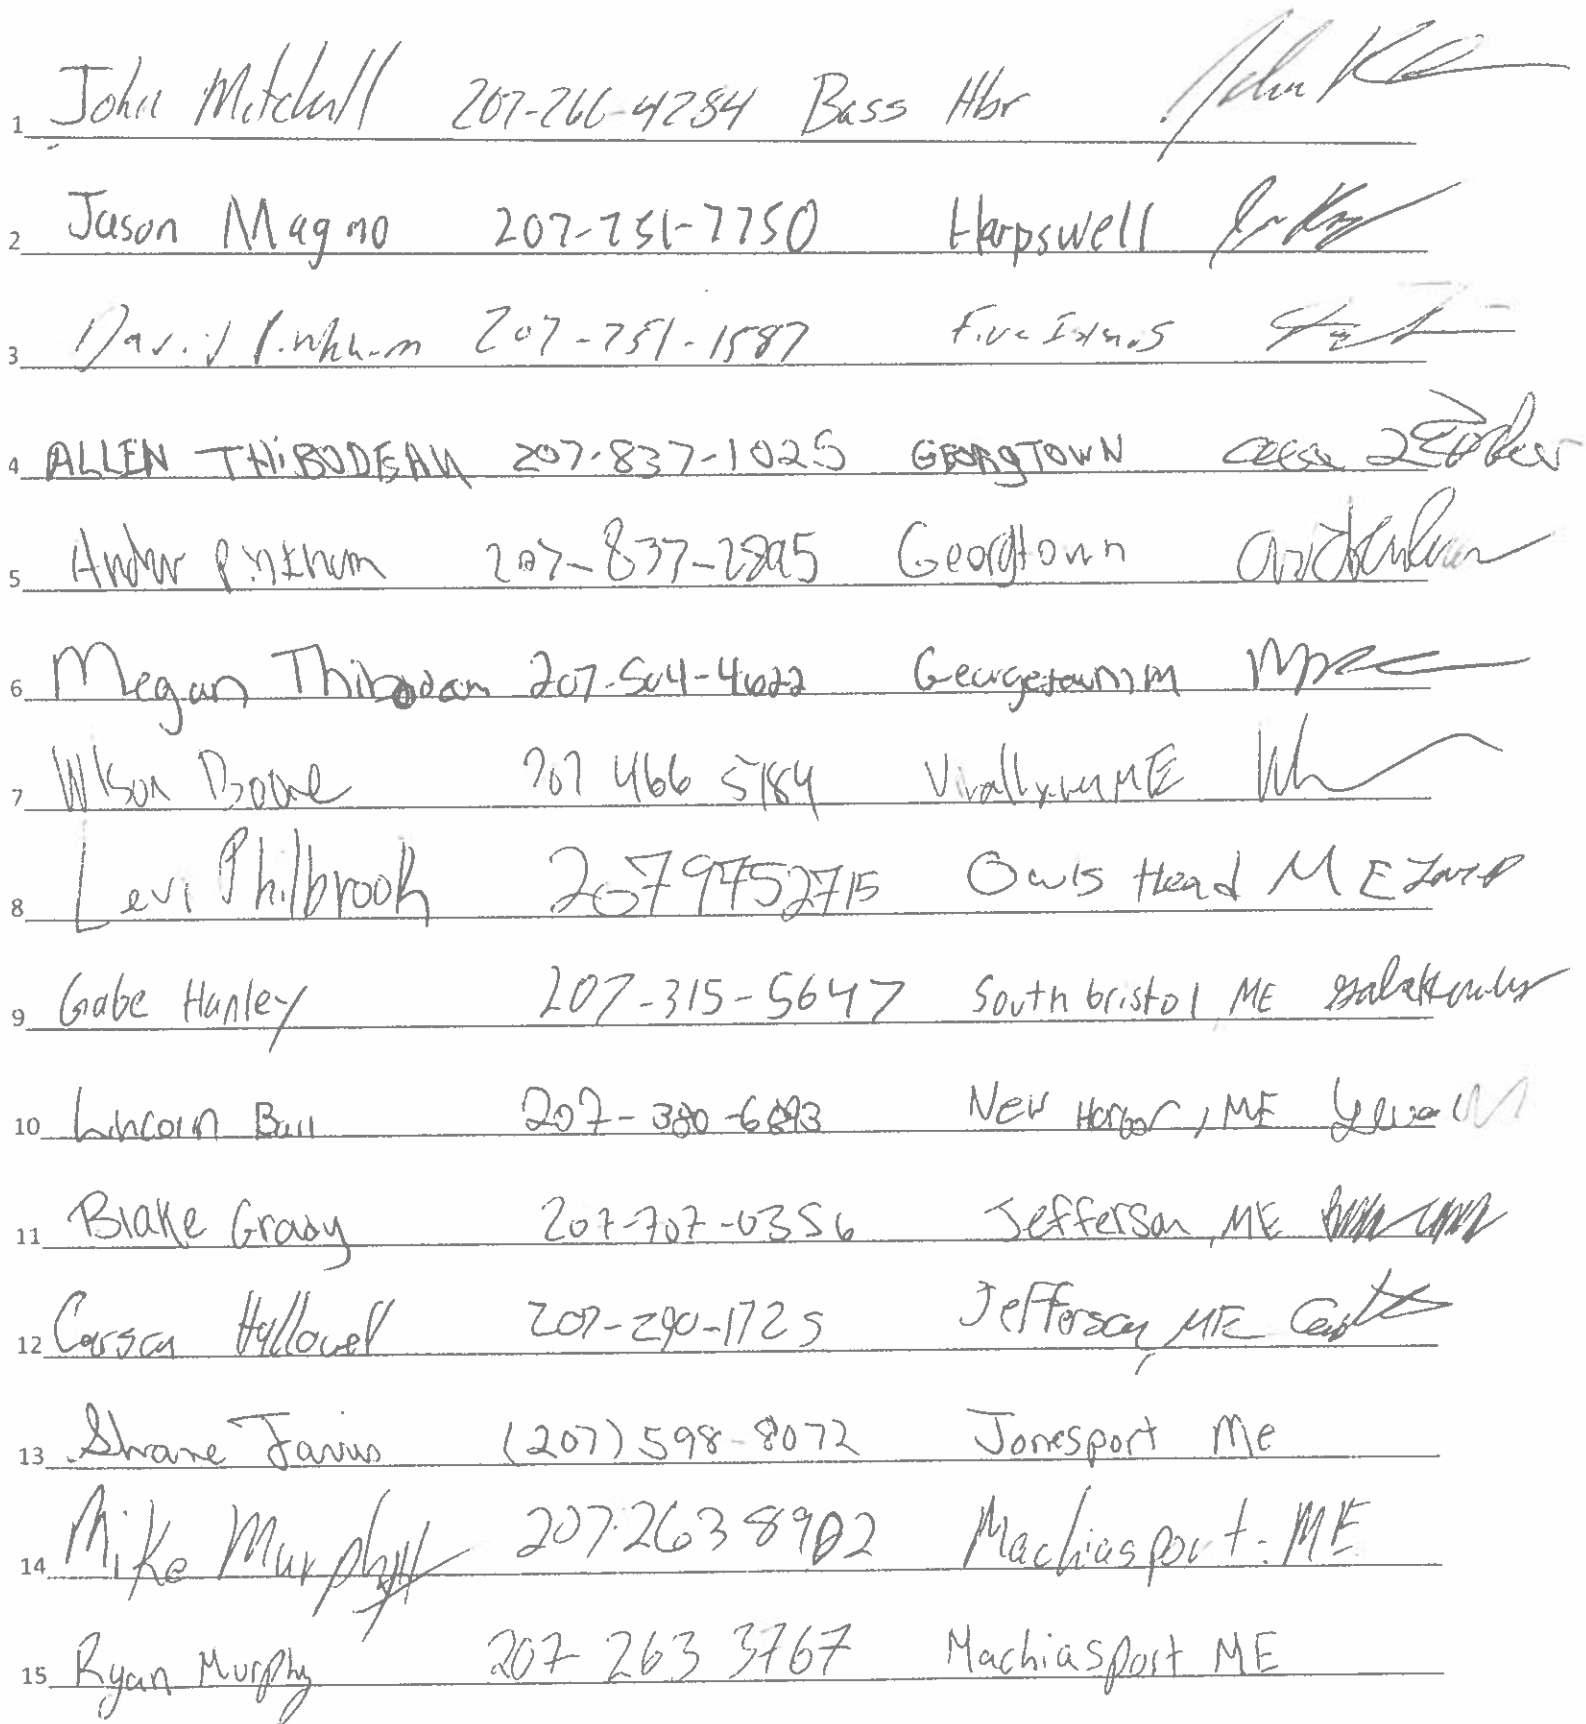 1 John Mitchell 207-266-4284 Bass Hbr
2 Jason Magno 207-751-7750 Harpswell
3 David Pinkham 207-751-1587 Five
4 ALLEN THIBODEAU 207-837-1025 GEORGTOWN
5 Pinkham 207-837-2895 Georgtown
6 Megan 207-504-4622 Georgetown M
7 Wilson 207 466 5184 ME
8 Levi Philbrook 207 9752715 Owls Head ME
9 Gabe Hanley 207-315-5647 South bristol, ME
10 Lincoln 207-380- New Harbor, ME
11 Blake Grady 207-707-0356 Jefferson, ME
12 Carson 207-290-1725 Jefferson, ME
13 Shane (207) 598-8072 Jonesport Me
14 Mike Murphy 207-263 8902 Machiasport. ME
15 Ryan Murphy 207 263 3767 Machiasport ME